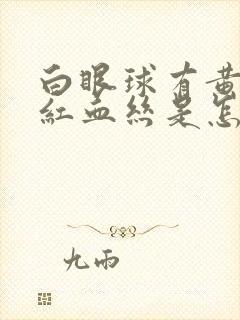 白眼球有黄
紅血絲是怎
九雨